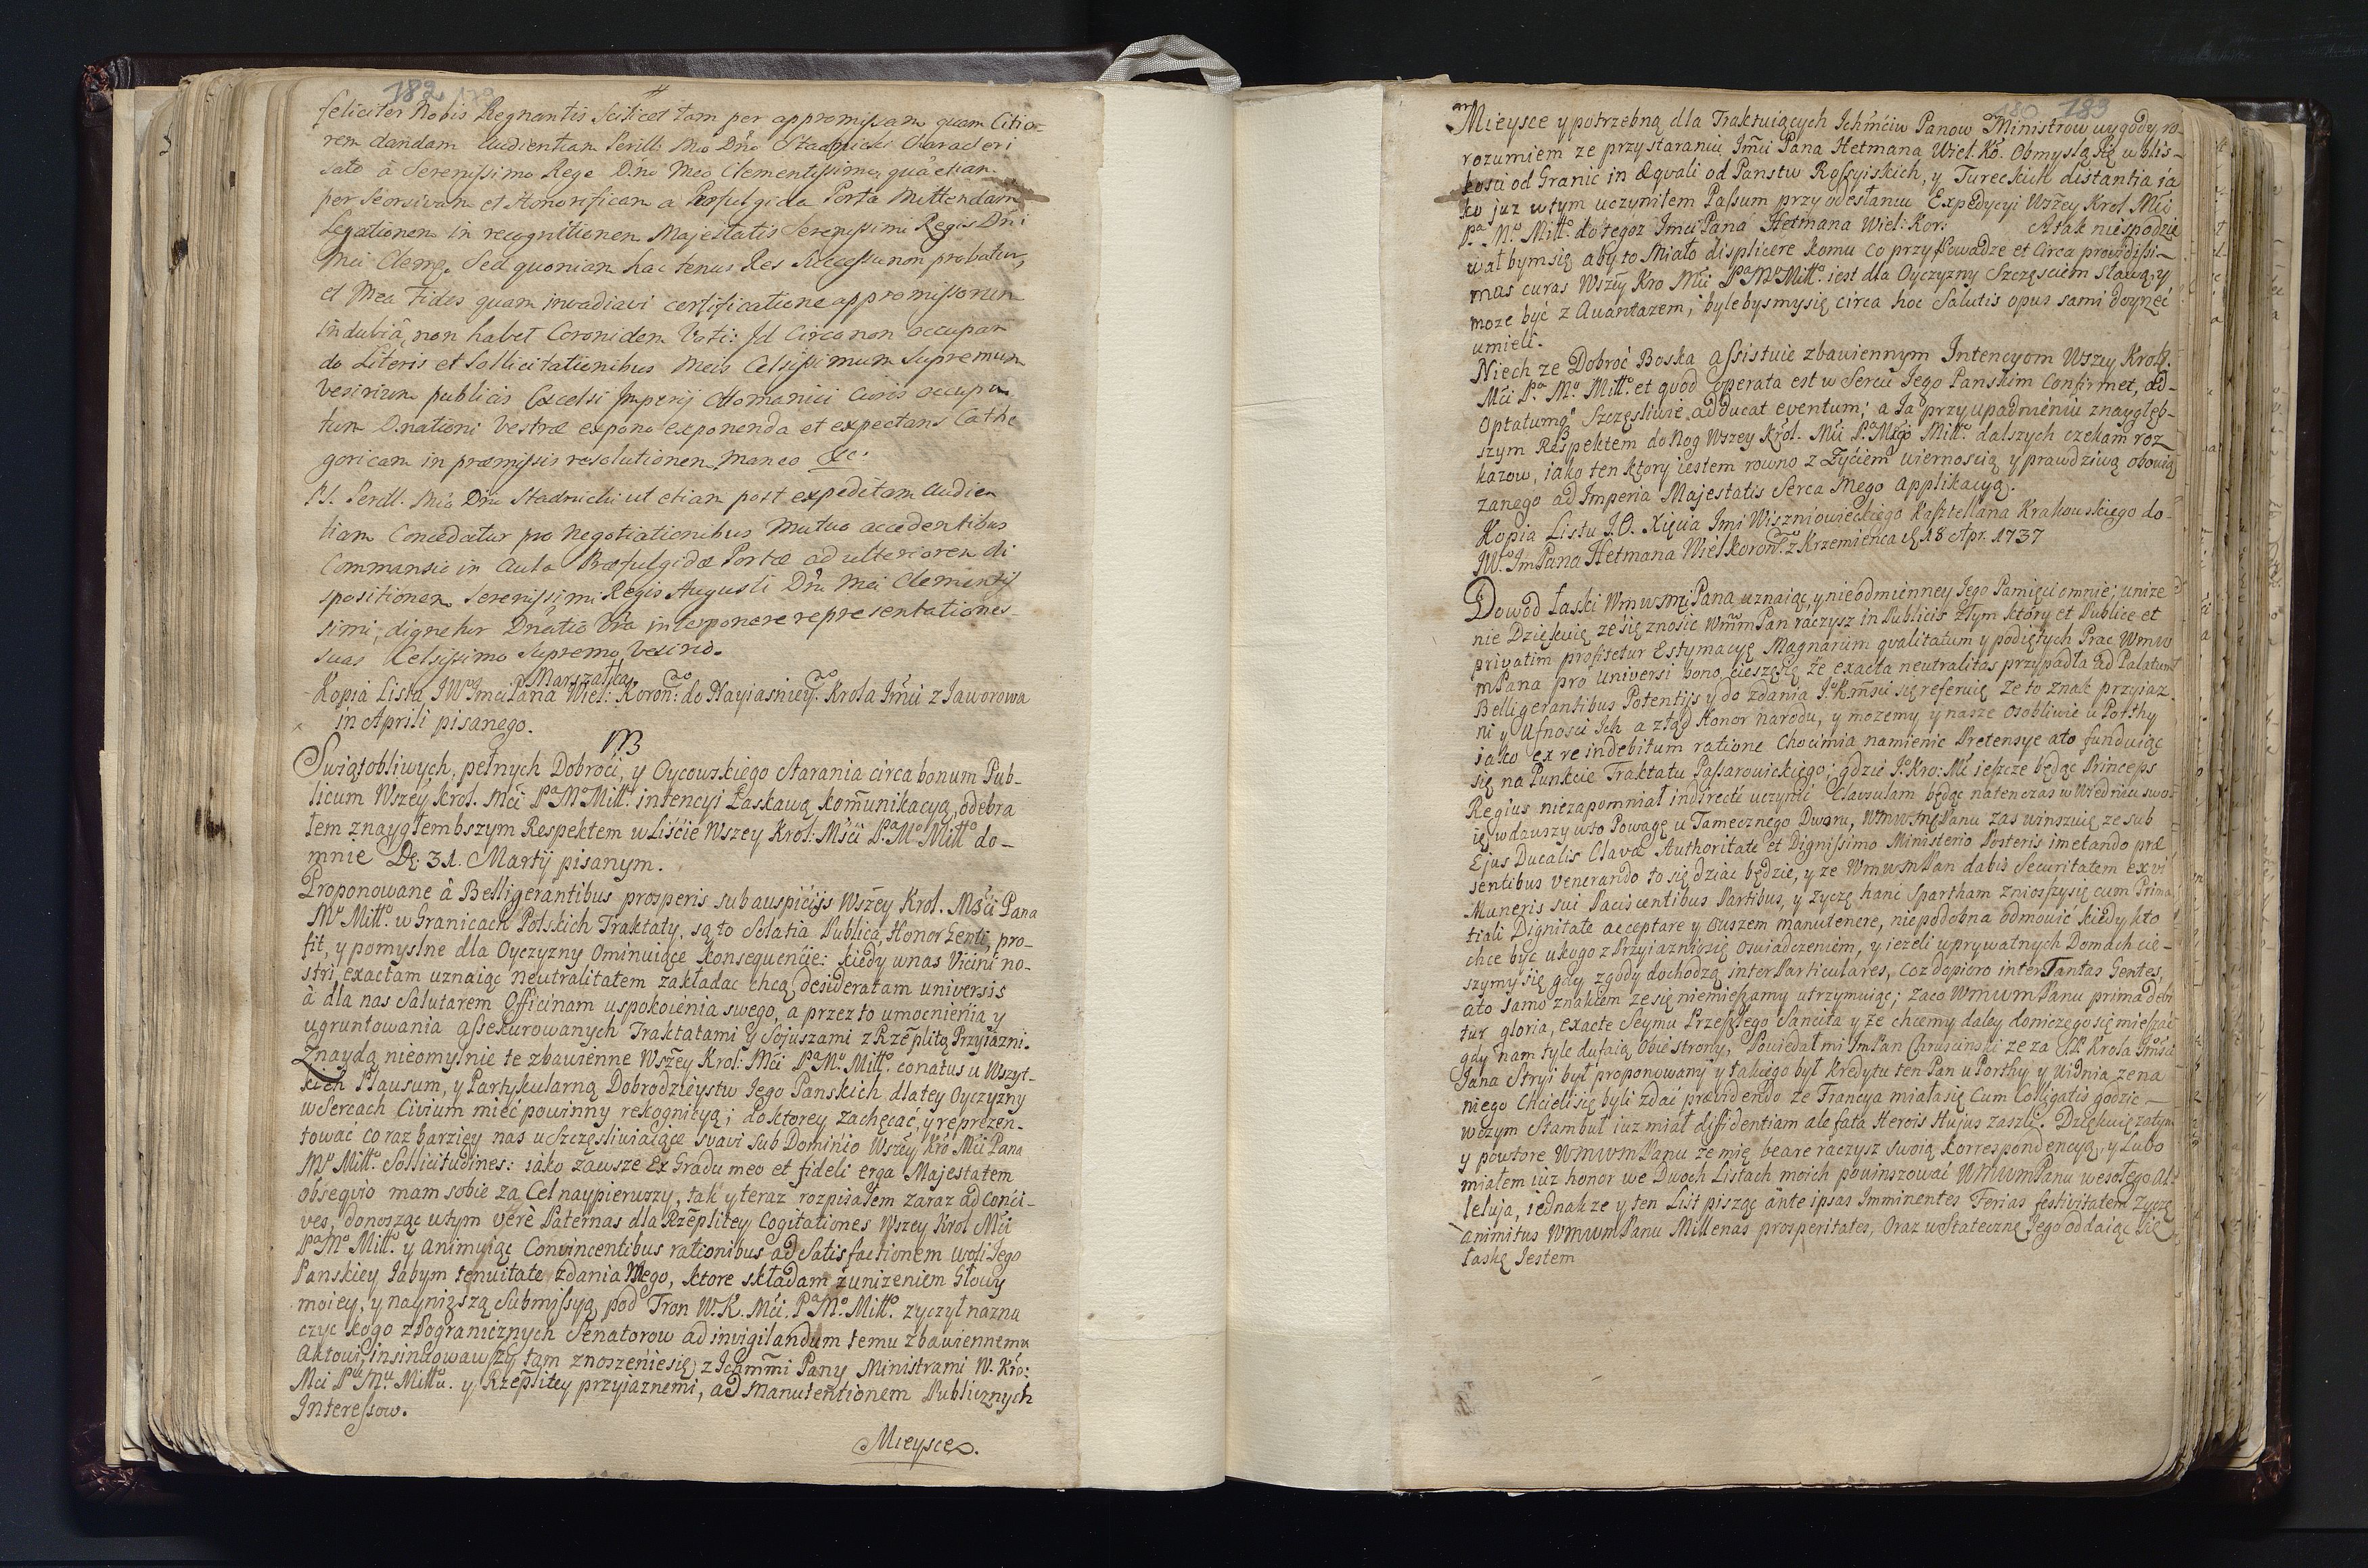 182
feliciter Nobis Regnantis Scilicet tam per appromissam quam Citio-
rem dandam Audientiam Perill: Mto Dno Stadnicki Characteri
sato à Serenissimo Rege Dno Meo Clementissimo, quà etiam
per Seorsivam et Honorificam a Præfulgida Porta Mittendam
Legationem in recognitionem Majestatis Serenissimi Regis Dni
Mei Cleme. Sed quoniam hac tenus Res Successu non probatur,
et Mea Fides quam invadiavi certificatione appromissorum
indubiâ, non habet Coronidem Voti: Id Circo non occupan
do Literis et Sollicitationibus Meis Celsissimum Supremum
Vesirium publicis Excelsi Imperij Ottomanici Curis occupa
tum D.nationi Vestræ expono exponenda et expectans Cathe
goricam in præmissis resolutionem maneo &c:
P.S. Perill. Mto Dno Stadnicki ut etiam post expeditam Audien
tiam Concedatur pro Negotiationibus Mutuo accedentibus
Commansio in Aula Præfulgidæ Portæ ad ulteriorem di
spositionem Serenissimi Regis Augusti Dni Mei Clementis
simi, dignetur Dnatio Vra interponere representationes
suas Celsissimo Supremo Vesirio.
Kopia Listu JWo Imci Pana Marszałka Wiel: Koronn: do Nayiasniey: Krola Imci z Jaworowa
in Aprili pisanego.
Swiątobliwych, pełnych Dobroci, y Oycowskiego Starania circa bonum Pub-
licum Wszey Krol. Mci Pa Mo Mitto intencyi Łaskawą kommunikacyą, odebra
łem znaygłembszym Respektem w Liscie Wszey Krol: Mści Pa Mo Mitto do-
mnie De 31. Martij pisanym.
Proponowane â Belligerantibus prosperis sub auspicijs Wszey Krol. Mści Pana
Mo Mitto w Granicach Polskich Traktaty, są to Solatia Publica, Honor Genti, pro-
fit, y pomyslne dla Oyczyzny Ominuiące konsequencie: kiedy unas Vicini no-
stri, exactam uznaiąc Neutralitatem zakładac chcą desideratam universis
à dla nas Salutarem Officinam uspokoienia swego, a przez to umocnienia y
ugruntowania assekurowanych Traktatami y Sojuszami z Rzeplitą Przyiazni.
Znaydą nieomylnie te zbawienne Wszey Krol: Mci Pa Mo Mitto conatus u Wszyt-
kich Plausum, y Partykularną Dobrodzieystw Jego Panskich dla tey Oyczyzny
w Sercach Civium mieć powinny rekognicyą; do ktorey zachęcać, y reprezen-
tować co raz barziey nas uszczęsliwiaiące suavi Sub Dominio Wszey Kro Mci Pana
Mo Mitto Sollicitudines: iako zawsze Ex Gradu meo et fideli erga Majestatem
obsequio mam sobie za Cel naypierwszy, tak y teraz rozpisałem zaraz ad Conci-
ves, donosząc w tym verè Paternas dla Rzeplitey Cogitationes Wszey Krol Mci
Pa Mo Mitto y animuiąc Convincentibus rationibus ad Satisfactionem woli Jego
Panskiey Jabym tenuitate zdania Mego, ktore składam zunizeniem Głowy
moiey, y nayniższą Submissyą pod Tron W.K. Mci Pa Mo Mitto zyczył nazna
czyc kogo z Pogranicznych Senatorow ad invigilandum temu zbawiennemu
Aktowi, insinuowawszy tam znoszenie się z Ichmmi Pany Ministrami W. Kro:
Mci Pa Mo Mitto. y Rzeplitey przyiaznemi, ad Manutentionem Publicznych
Interessow.
Mieysce.
180 183
Mieysce y potrzebną dla Traktuiących Ichmciw Panow Ministrow wygody ro-
rozumiem ze przy staraniu Imci Pana Hetmana Wiel. Ko. Obmyslą się w blis-
kosci od Granic in Æquali od Panstw Rossyiskich, y Tureckich distantia ia
ko juz w tym uczyniłem Passum przy odesłaniu Expedycyi Wszey Krol Mci
Pa Mo Mitto do tegoż Imci Pana Hetmana Wiel: Kor: A tak niespodzie
wał bym się aby to Miało displicere komu co przy Powadze et Circa providissi-
mas curas Wszey Kro Mci Pa Mo Mitto iest dla Oyczyzny Szczęsciem sławą, y
moze być z Awantazem, byle bysmy się circa hoc Salutis opus sami doyzeć
umieli.
Niech ze Dobroć Boska assistuie zbawiennym Intencyom Wszey Krol:
Mci Pa Mo Mitto et quod operata est w Sercu Jego Panskim Confirmet, ad-
Optatumq Szczęsliwie adducat eventum; a Ja przy upadnieniu znaygłęb-
szym Respektem do Nog Wszey Krol. Mci Pa Mego Mitto dalszych czekam roz
kazow, iako ten ktory iestem rowno z Zyciem wiernoscią y prawdziwą obowią
zanego ad Imperia Majestatis Serca Mego applikacyą.
Kopia Listu J.O. Xięcia Imci Wiszniowieckiego Kasztellana Krakowskiego do-
JWo Im Pana Hetmana Wiel koron: z Krzemienca d 18 Apr. 1737
Dowod Łaski Wmwmę Pana uznaiąc, y nieodmienney Jego Pamięci o mnie; unize
nie Dziękuię ze się znosic Wmm Pan raczysz in Publicis z tym ktory et Publice et
privatim profitetur Estymacyę Magnarum qvalitatum y podiętych Prac Wmw
mPana pro universi bono, cieszę się że exacta neutralitas przypadła ad Palatum
Belligerantibus Potentijs y do zdania Jo Kmsci się referuię Ze to znak przyiaz-
ni y Ufnosci Ich a ztąd Honor narodu, y mozemy y nasze osobliwie u Porthy
iako ex re indebitum ratione Chocimia namienic Pretensye a to funduiąc
się na Punkcie Traktatu Passarowickiego; gdzie Jo Kro: Mc ieszcze będąc Princeps
Regius niezapomniał indirecte uczynić Clavzulam będąc natenczas w Wiedniu swo-
ię wdawszy w to Powagę u Tamecznego Dworu, Wmwmę Panu zas winszuię ze sub
Ejus Ducalis Clavæ Authoritate et Dignissimo Ministerio Posteris imetando præ
sentibus venerando to się dziac będzie, y ze Wmwm Pan dabis Securitatem ex vi
Muneris sui Paciscentibus Partibus, y zyczę hanc Spartham zniosszy się cum Prima
tiali Dignitate acceptare y owszem manutenere, niepodobna odmowic kiedy kto
chce byc u kogo z Przyiaznią się oswiadczeniem, y iezeli w prywatnych Domach cie-
szymy się gdy zgody dochodzą inter Particulares, coz dopioro inter Tantas Gentes,
a to samo znakiem ze się niemieszamy utrzymuiąc; zaco Wmwm Panu prima debe
tur gloria, exacte Seymu Przeszłego Sancita y że chcemy daley do niczego się mieszać
gdy nam tyle dufaią Obie strony, Powiedał mi Im Pan Chruscinski ze za SP Krola Imsci
Jana Stryi był proponowany y takiego był kredytu ten Pan u Porthy y Widnia ze na
niego Chcieli się byli zdać prævidendo ze Francya miała się Cum Colligatis godzic-
w czym Stambuł iuz miał diffidentiam ale fata Herois Hujus zaszli. Dziękuię zatym
y powtore Wmwm Panu ze mię beare raczysz swoią korrespondencyą, y Lubo
miałem iuz honor we Dwoch Listach moich powinszować Wmwm Panu wesołego Al-
leluja, iednakze y ten List pisząc ante ipsas Imminentes Ferias festivitatem zyczę
animitus Wmwm Panu Millenas prosperitates, Oraz w Stateczną Jego oddaiąc się
łaskę Jestem